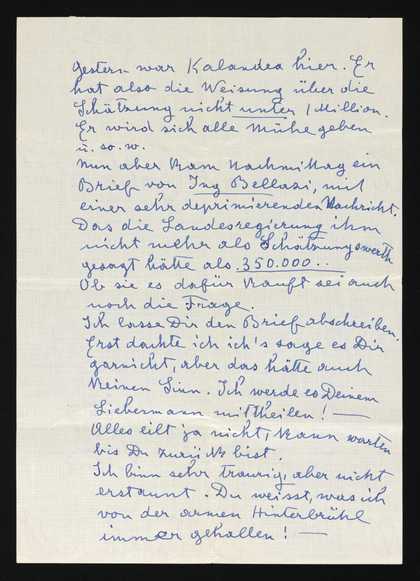 Gestern war Kalandea hier. Er
hat also die Weisung über die
Schätzung nicht unter 1 Million.
Er wird sich alle Mühe geben
u. so. w.
Nun aber kam Nachmittag ein
Brief von Ing Bellasi, mit
einer sehr deprimierenden Nachricht.
Das die Landesregierung ihm
nicht mehr als Schätzungswerth
gesagt hätte als 350.000..
Ob sie es dafür kauft sei auch
noch die Frage.
Ich lasse Dir den Brief abschreiben.
Erst dachte ich ich's sage es Dir
garnicht, aber das hätte auch
keinen Sinn. Ich werde es Deinem
Liebermann mittheilen! —
Alles eilt ja nicht, kann warten
bis Du zurück bist.
Ich binn sehr traurig, aber nicht
erstaunt. Du weisst, was ich
von der armen Hinterbrühl
immer gehalten! —